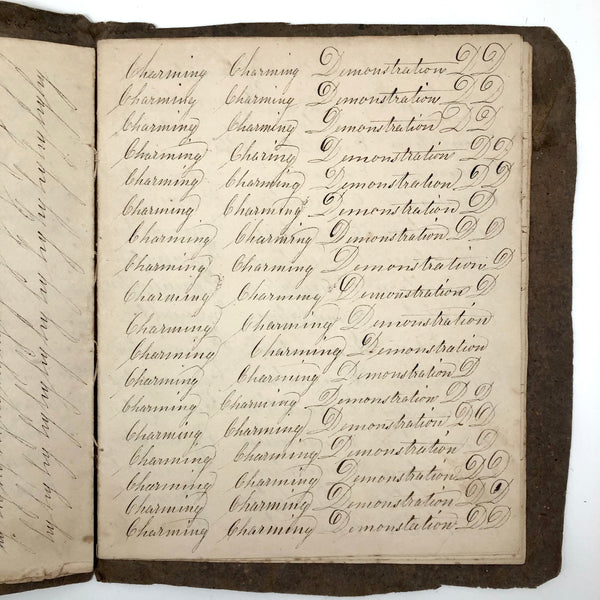 Charming Charming Demonstration D D
Charming Charming Demonstration D D
Charming Charming Demonstration D D
Charming Charing Demonstration D D
Charming Charming Demonstration D D
Charming Charming Demonstration D D
Charming Charming Demonstration D D
Charming Charming Demonstration D
Charming Charming Demonstration D
Charming Charming Demonstration
Charming Charming Demonstration
Charming Charming Demonstration D
Charming Charming Demonstration D D
Charming Charming Demonstration D D
Charming Charming Demonstration D
Charming Charming Demonstration D D
Charming Charming Demonstration D D
Charming Charming Demonstation D D